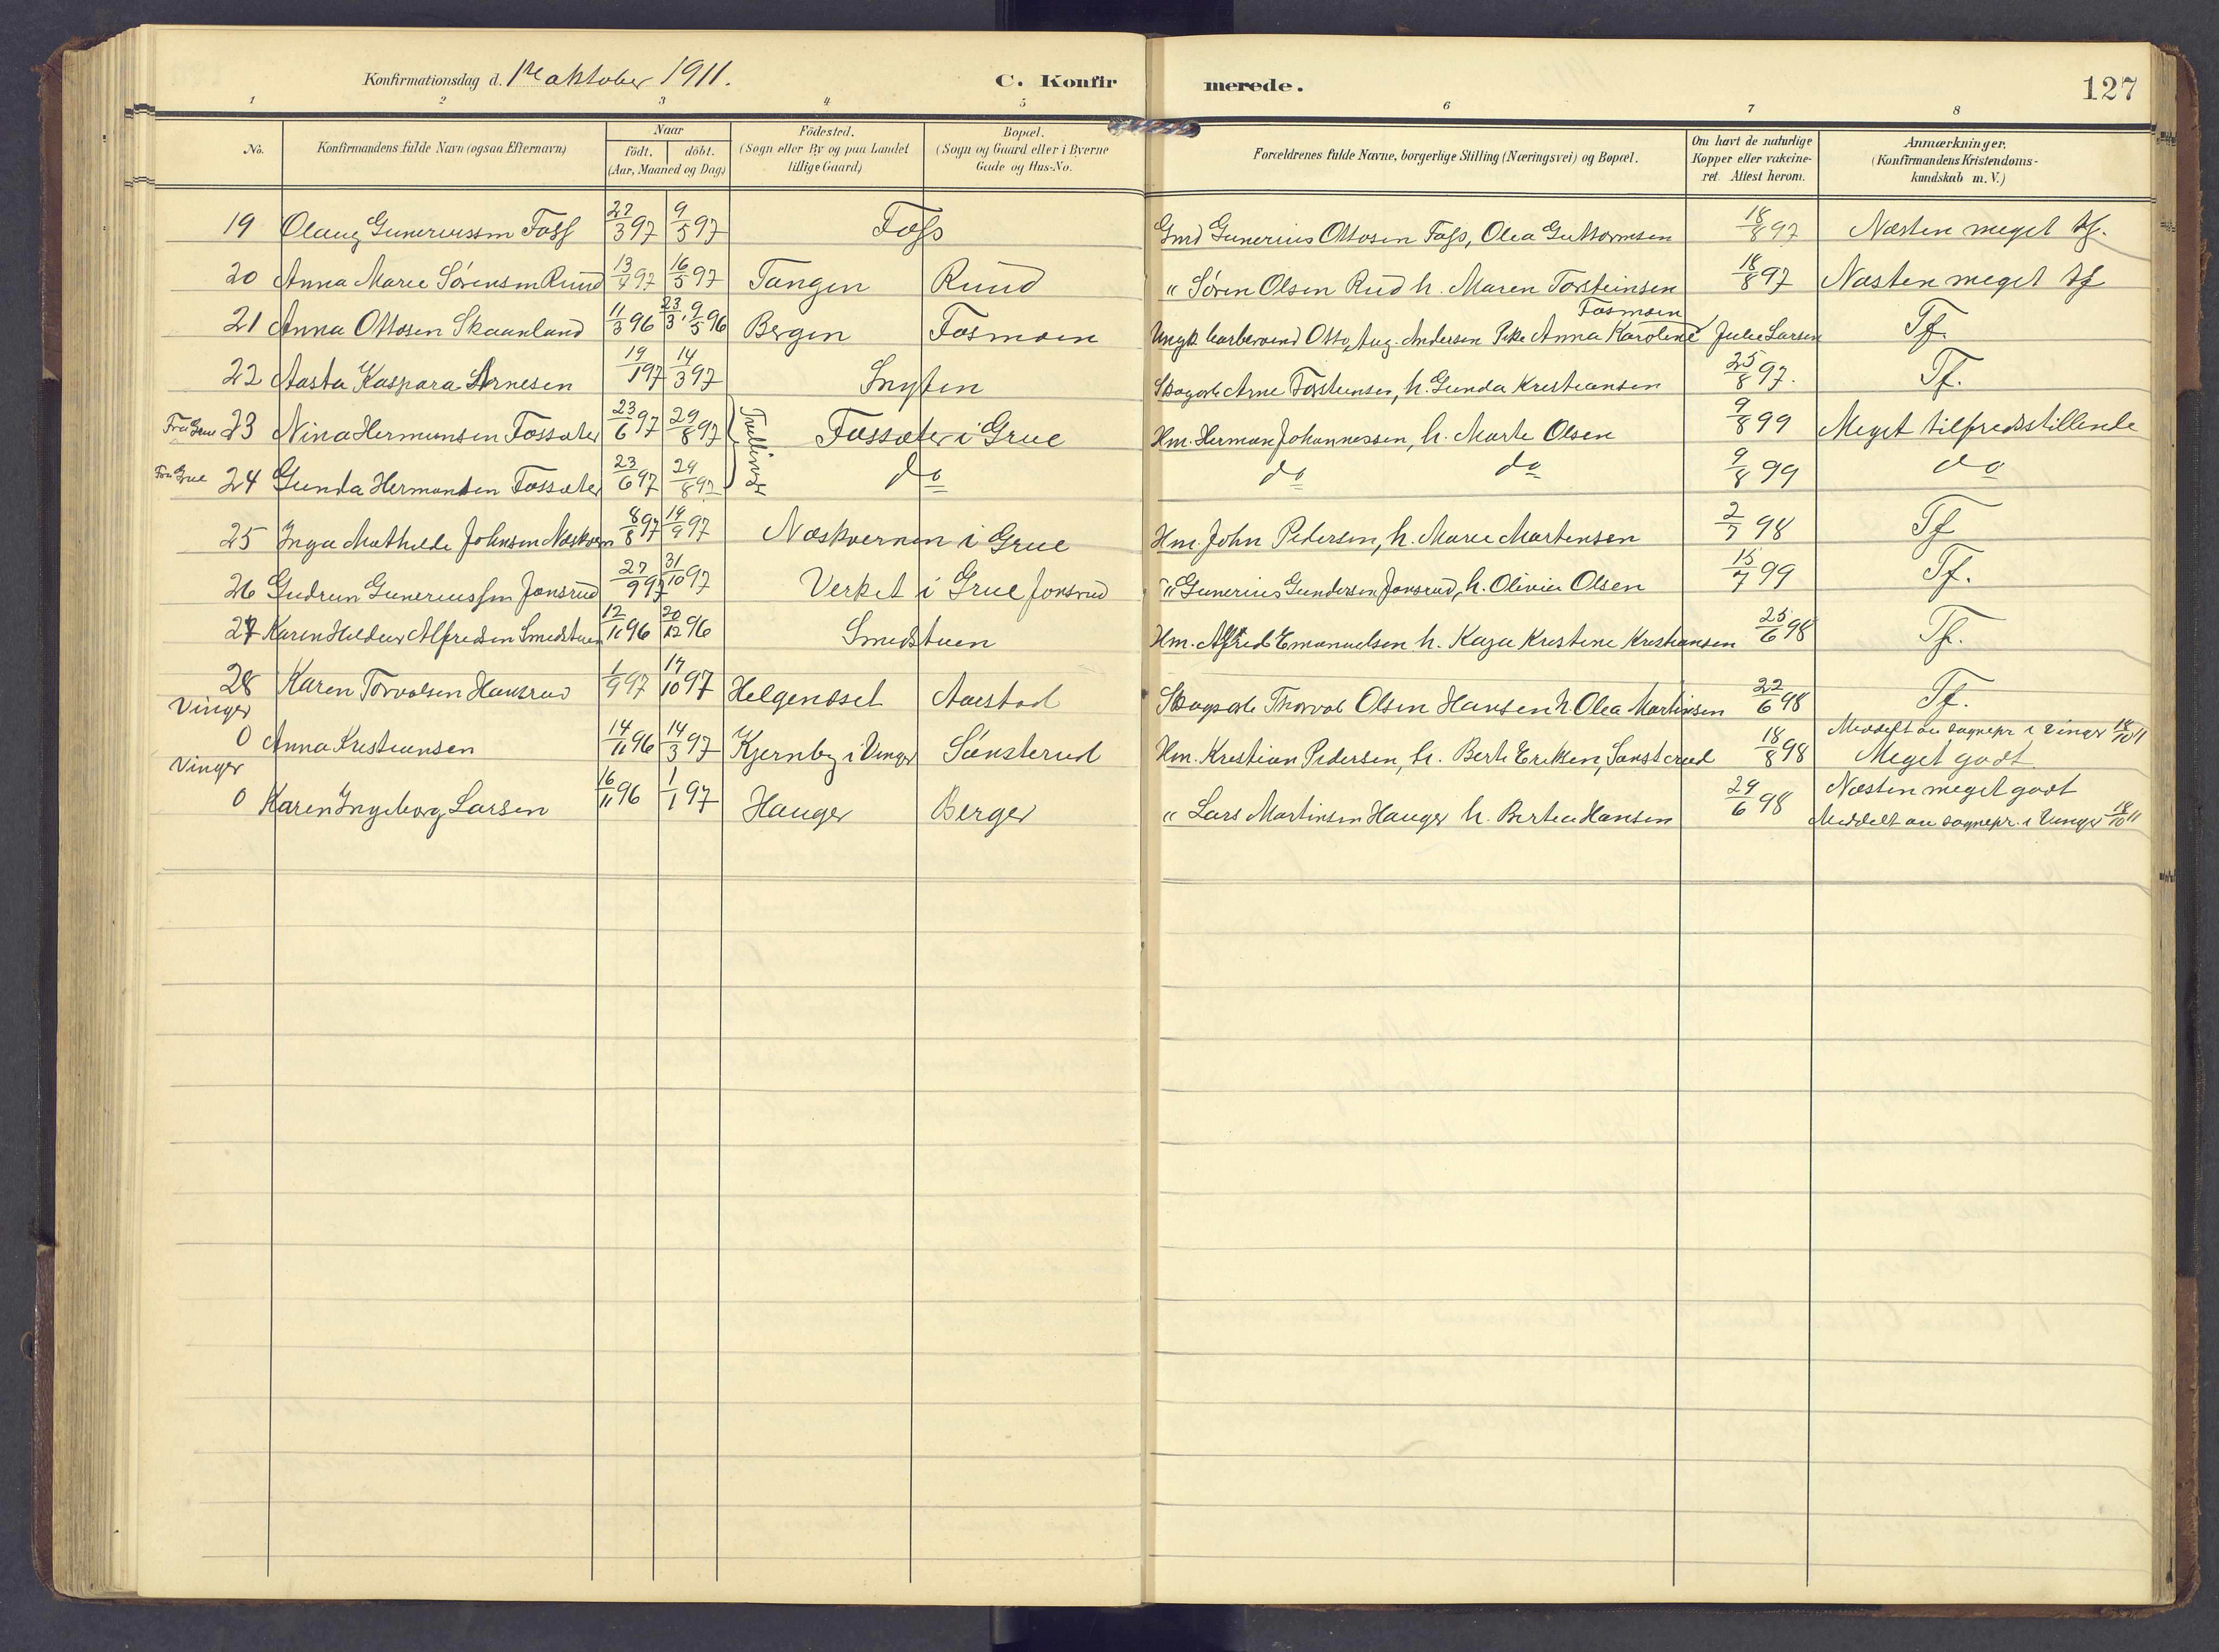 Konfirmationsdag d. 1ste oktober 1911.
C. Konfirmerede.
127
1 2 3 4 5 6 7 8
No.
Konfirmandens fulde Navn (ogsaa Efternavn)
Naar
födt. döbt.
(Aar, Maaned og Dag)
Födested.
(Sogn eller By og paa Landet
tillige Gaard)
Bopæl.
(Sogn og Gaard eller i Byerne
Gade og Hus-No.
Forældrenes fulde Navne, borgerlige Stilling (Næringsvei) og Bopæl.
Om havt de naturlige
Kopper eller vakcine-
ret. Attest herom.
Anmærkninger.
(Konfirmandens Kristendoms-
kundskab m. V.)
19 Olaug Gunerussen Foss 27/3 97 9/5 97 Foss Gmd Gunerius Ottosen Foss, Olea Guttormsen 18/8 97 Næsten meget tf.
20 Anna Marie Sörensen Ruud 13/4 97 16/5 97 Tangen Ruud " Sören Olsen Rud h. Maren Torsteinsen 18/8 97 Næsten meget tf
Fosmoen
21 Anna Ottosen Skaanland 11/3 96 23/3, 9/5 96 Bergen Fosmoen Ungk. Otto Aug. Andersen Pike Anna Karoline Julie Larsen Tf.
22 Aasta Kaspara Arnesen 19/1 97 14/3 97 Snyten Skogarb Arne Torsteinsen, h. Gunda Kristiansen 25/8 97. Tf.
Fra Grue 23 Nina Hermansen Fossæter 23/6 97 29/8 97 Tvillinger Fossæter i Grue Hm. Herman Johannessen, h. Marte Olsen 9/8 99 Meget tilfredsstillende
Fra Grue 24 Gunda Hermansen Fossæter 23/6 97 29/8 97 do do do 9/8 99 do
25 Inga Mathilde Johnsen Næskvern 8/8 97 19/9 97 Næskvernen i Grue Hm. John Pedersen, h. Marie Martensen 2/7 98 Tf
26 Gudrun Guneriussen Jonsrud 27/9 97 31/10 97 Verket i Grue Jonsrud " Gunerius Gundersen Jonsrud, h. Olivia Olsen 15/7 99 Tf.
27 Karen Hildur Alfredsen Smedstuen 12/11 96 20/12 96 Smedstuen Hm. Alfred Emanuelsen h. Kaja Kristine Kristiansen 25/6 98 Tf.
28 Karen Torvalsen Hansrud 1/9 97 17/10 97 Helgenöset Aarstad Skogsarb Thorval Olsen Hansen h. Olea Martinsen 22/6 98 Tf.
Vinger
0 Anna Kristiansen 14/11 96 14/3 97 Kjernby i Vinger Sönsterud Hm. Kristian Pedersen, h. Berte Eriksen, Sönsterud 18/8 98 Meddelt au sognepr i Vinger 18/10 11
Meget godt
Vinger
0 Karen Ingeborg Larsen 16/11 96 1/1 97 Hauger Berger " Lars Martinsen Hauger h. Bertea Hansen 29/6 98 Næsten meget godt
Meddelt au sognepr. i Vinger 18/10 11